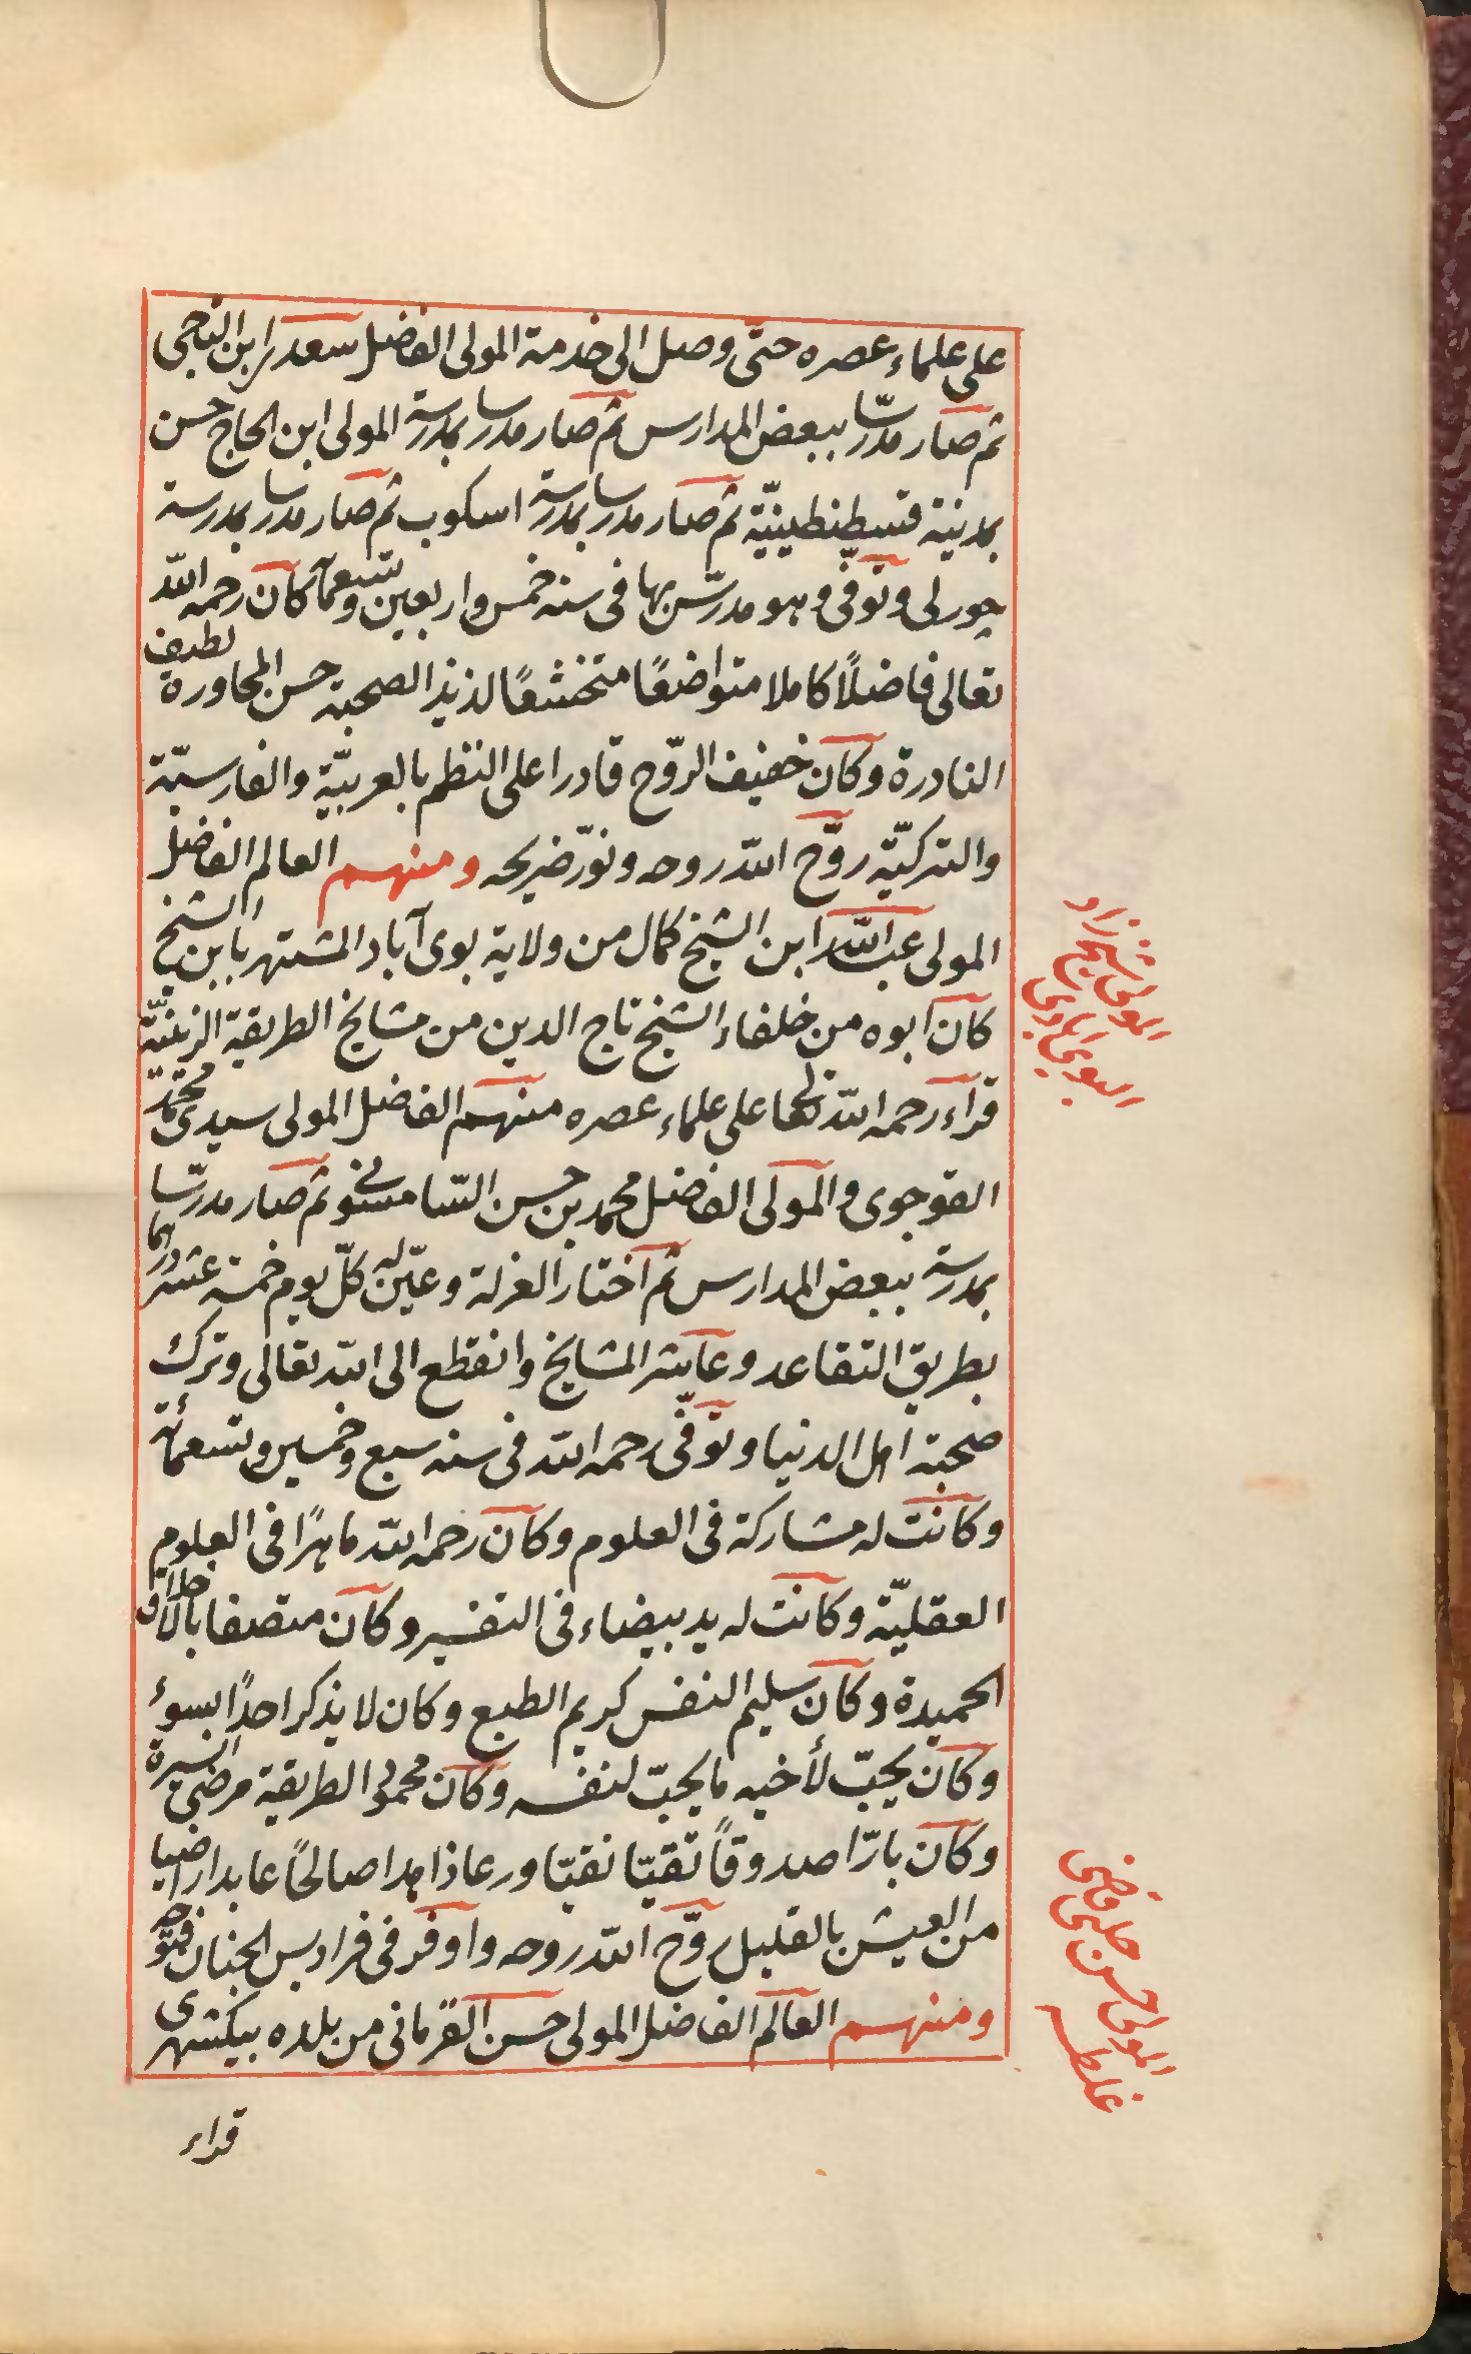 على علماء عصره حتى وصل الى خدمة المولى الفاضل سعدى ابن الناجى
ثم صار مدرّسا ببعض المدارس ثم صار مدرسا بمدرسة المولى ابن الحاج حسن
بمدينة قسطنطينيّة ثم صار مدرسا بمدرسة اسكوب ثم صار مدرسا بمدرسة
چورلى وتوفّى وهو مدرّس بها فى سنه خمس واربعين وتسعمآ كان رحمه اللّه
تعالى فاضلًا كاملا متواضعًا متخشعًا لذيذ الصحبة حسن المحاورة لطيف
النادرة وكان خفيف الرّوح قادرا على النظم بالعربيّة والفارسيّة
والتركيّة روّح اللّه روحه ونوّر ضريحه ومنهم العالم الفاضل
المولى عبد اللّه ابن الشيخ كمال من ولاية بوى آباد المشتهر بابن الشيخ
كان ابوه من خلفاء الشيخ تاج الدين من مشايخ الطريقة الزينيّة
قراء رحمه اللّه تعالى على علماء عصره منهم الفاضل المولى سيدى محمّد
القوجوى والمولى الفاضل محمد بن حسن السّامسونى ثم صار مدرسّا
بمدرسة ببعض المدارس ثم اختار العزلة وعيّن له كلّ يوم خمسة عشر درهما
بطريق التقاعد وعاشر المشايخ وانقطع الى اللّه تعالى وترك
صحبة اهل الدنيا وتوفّى رحمه اللّه فى سنه سبع وخمسين وتسعمائة
وكانت له مشاركة فى العلوم وكان رحمه اللّه ماهرًا فى العلوم
العقليّة وكانت له يد بيضاء فى التفسير وكان متصفا بالاخلاق
الحميدة وكان سليم النفس كريم الطبع وكان لا يذكر احدًا بسوء
وكان يحبّ لأخيه ما يحبّ لنفسه وكان محمود الطريقة مرضى السيرة
وكان بارّا صدوقاً تقيّا نقيّا ورعا زاهدا صالحًا عابدا راضيا
من العيش بالقليل روّح اللّه روحه واوفر فى فراديس الجنان فتوّحه
ومنهم العالم الفاضل المولى حسن القرمانى من بلده بيكشهرى
قراء
المولى شيخ زاد
البوى ابادى
المولى حسن چلبى قاضى
غلطه